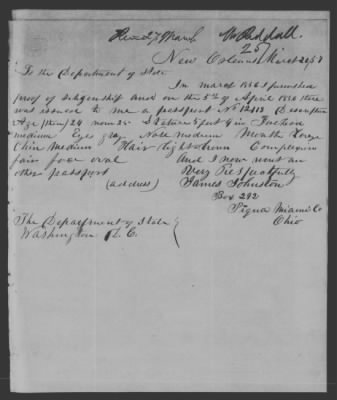 New Orleans March 20/57
To the Department of State
In march 1856 I furnished
proof of citizenship and on the 5th of April 1856 there
was issued to me a passport No 12413 Description
Age (then) 24 now 25 Stature 5 feet 9 in
medium Eyes gray Nose medium Mouth Large
Chin Medium Hair light brown Complexion
fair face oval And I now want an
other passport Very Respectfully
(address) James Johnston
Box 292
Piqua Miami Co
Ohio
The Department of State
Washington D. C.